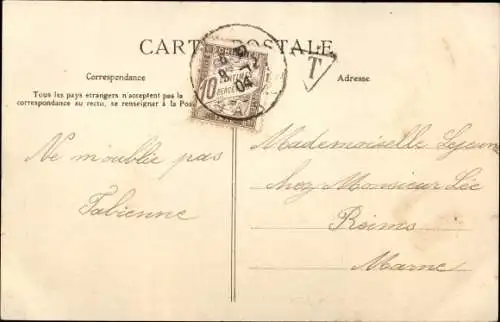 CARTE POSTALE
Correspondance
Tous les pays etrangers n'acceptent pas la
correspondance au recto, se renseigner à la Pos
Ne m'oublie pas
Fabienne
10
04
T
Adresse
Mademoiselle Lejeune
chez Monsieur Lée
Reims
Marne